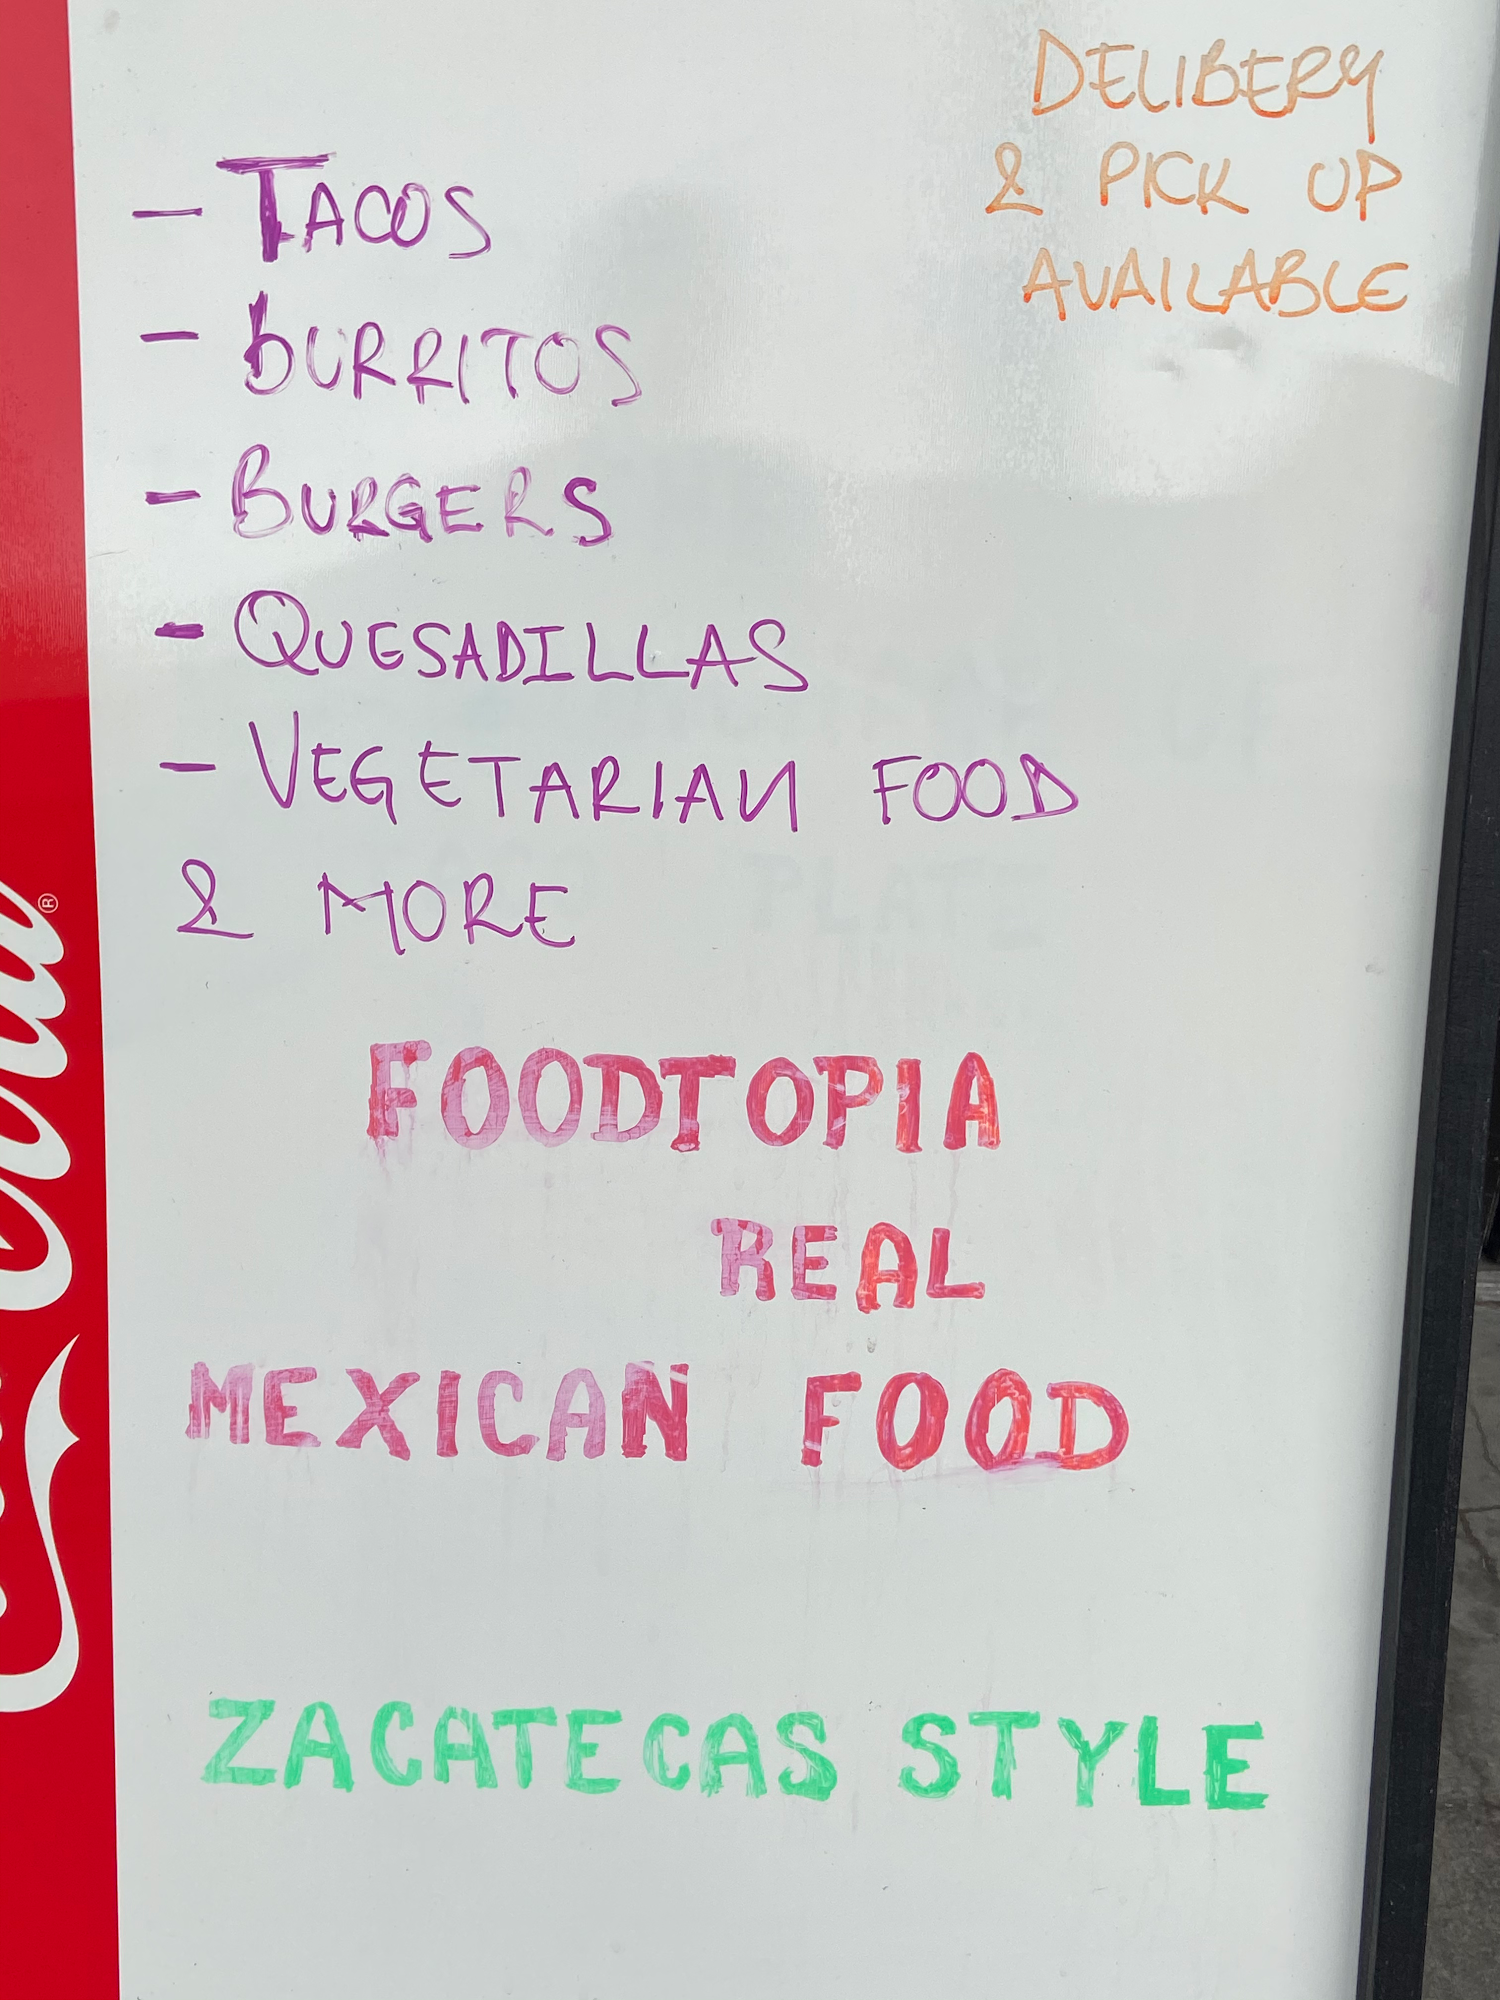 DELIBERY
& PICK UP
AVAILABLE
- TACOS
- BURRITOS
- BURGERS
- QUESADILLAS
- VEGETARIAN FOOD
& MORE
FOODTOPIA
REAL
MEXICAN FOOD
ZACATECAS STYLE